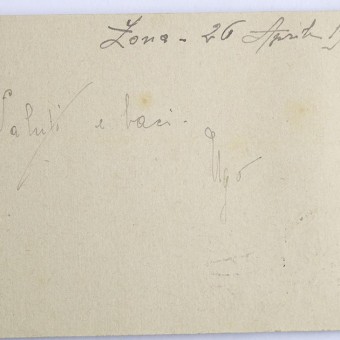 Zona - 26 Aprile
Saluti e baci -
Ugo